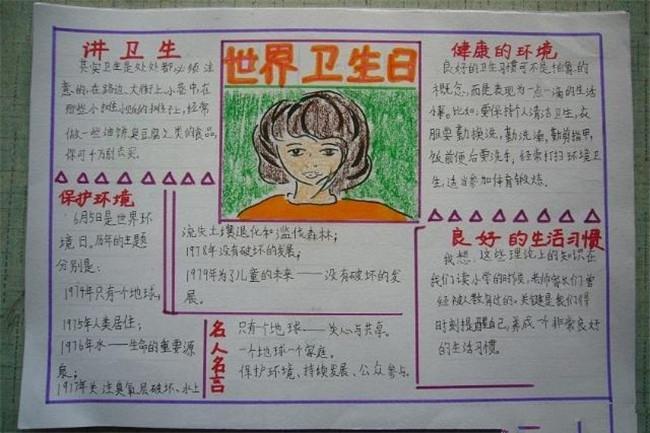 讲卫生
其实卫生是处处都必须注
意的,在路边、大街上、小巷中,在
那些小摊小贩的摊子上,经常
做一些油饼臭豆腐之类的食品,
你可千万别去买。
保护环境
6月5日是世界环
境日。历年的主题
分别是:
1974年只有一个地球;
1975年人类居住;
1976年水——生命的重要源
泉;
1977年关注臭氧层破坏、水土
世界卫生日
流失土壤退化和滥伐森林;
1978年没有破坏的发展;
1979年为了儿童的未来——没有破坏的发
展。
名人名言
只有一个地球——关心与共享。
一个地球一个家庭。
保护环境、持续发展、公众参与。
健康的环境
良好的卫生习惯可不是抽象的
概念,而是表现为一点一滴的生活
小事。比如:要保持个人清洁卫生,衣
服要勤换洗,勤洗澡,勤剪指甲,
饭前便后要洗手,经常打扫环境卫
生,适当参加体育锻炼。
良好的生活习惯
我想:这些理论上的知识在
我们读小学的时候,老师家长们曾
经被人教育过的。关键是我们得
时刻提醒自己,养成一个非常良好
的生活习惯。